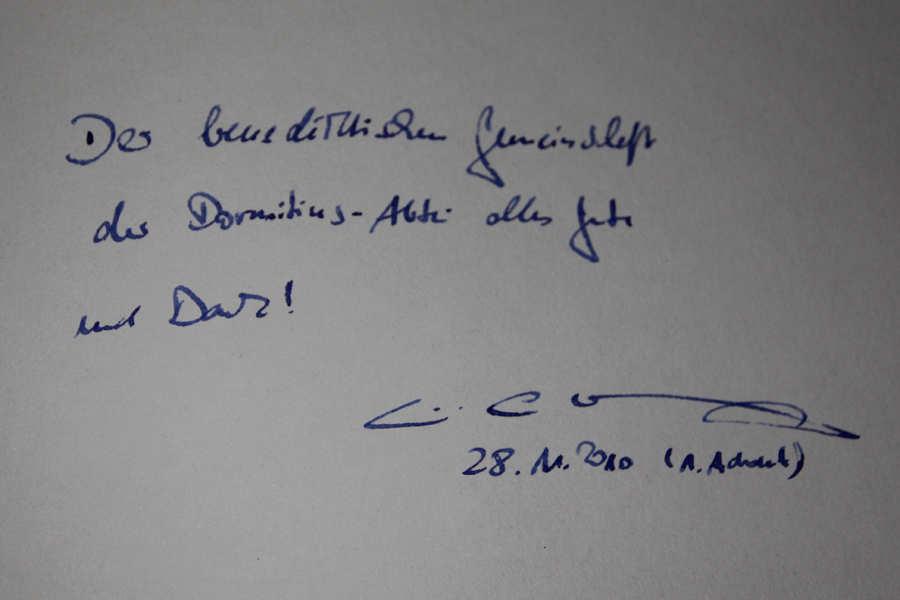 Der benediktinischen Gemeinschaft
der Dormitius-Abtei alles Gute
und Dank!
28.11.2010 (1. Advent)